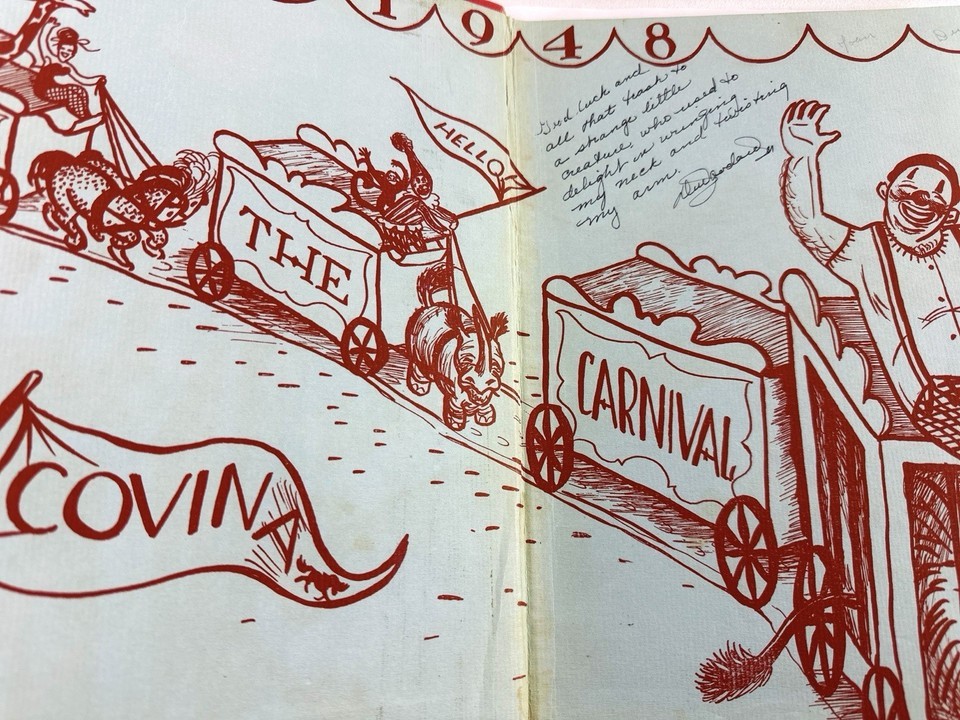 1948
Good luck and
all that trash to
a strange little
creature, who used to
delight in wringing
my neck and twisting
my arm.
HELLO!
THE
CARNIVAL
COVINA
from